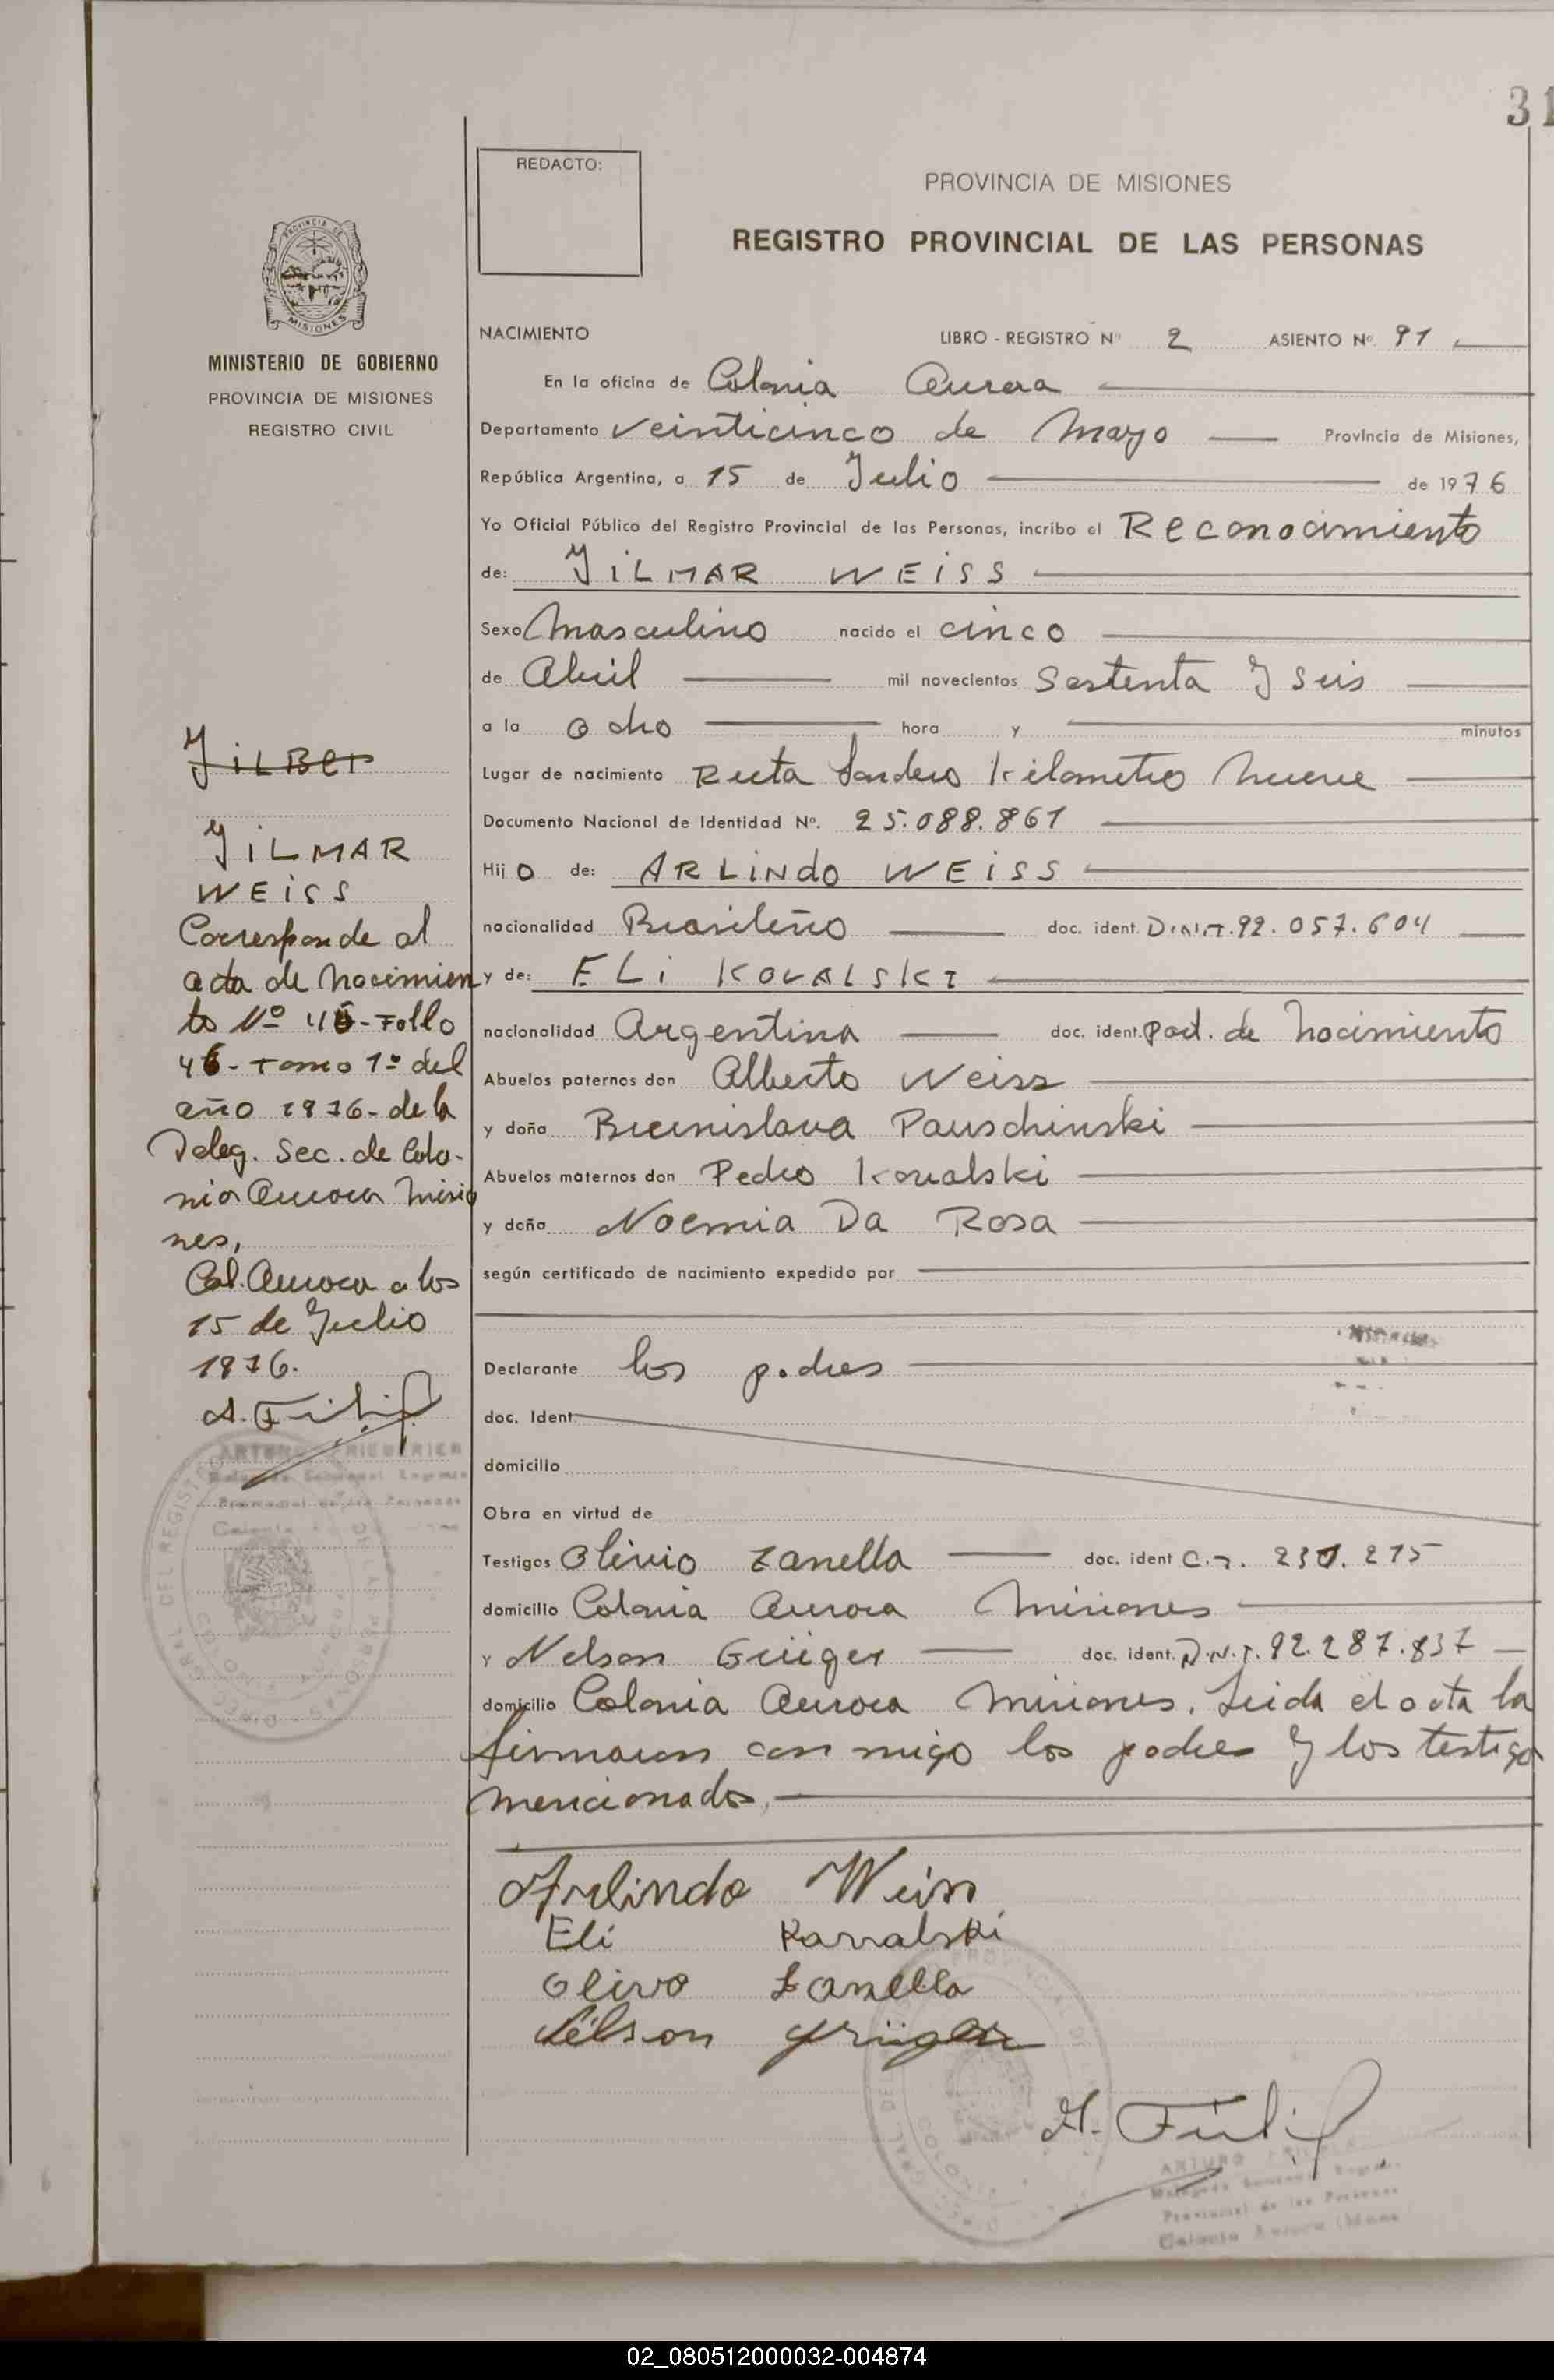 31
REDACTO:
PROVINCIA DE MISIONES
REGISTRO PROVINCIAL DE LAS PERSONAS
MISIONES
MINISTERIO DE GOBIERNO
PROVINCIA DE MISIONES
REGISTRO CIVIL
NACIMIENTO LIBRO - REGISTRO Nº 2 ASIENTO Nº 91
En la oficina de Colonia Aurora
Departamento Veinticinco de Mayo Provincia de Misiones,
República Argentina, a 15 de Julio de 1976
Yo Oficial Público del Registro Provincial de las Personas, incribo el Reconocimiento
de: JiLMAR WEiSS
Sexo Masculino nacido el cinco
de Abril mil novecientos Sestenta y seis
a la ocho hora y minutos
Lugar de nacimiento Ruta Kilometro Nueve
Documento Nacional de Identidad Nº. 25.088.861
Hijo de: ARLiNdo WEiSS
nacionalidad Brasileño doc. ident. D.N.I. 92.057.604
y de: ELi KOVALSKI
nacionalidad Argentina doc. ident. Part. de Nacimiento
Abuelos paternos don Alberto Weiss
y doña Brunislava Pauschinski
Abuelos maternos don Pedro Kovalski
y doña Noemia Da Rosa
según certificado de nacimiento expedido por
Declarante los padres
doc. Ident
domicilio
Obra en virtud de
Testigos Olivio Zanella doc. ident C.I. 230.275
domicilio Colonia Aurora Misiones
y Nelson Grüger doc. ident. D.N.I. 92.287.837
domicilio Colonia Aurora Misiones. Leida el acta la
firmaron con migo los padres y los testigos
mencionados.
JiLBer
JiLMAR
WEiSS
Corresponde al
acta de Nacimien
to Nº 45-Follo
46-Tomo 1º del
año 1976-de la
Deleg. Sec. de Colo-
nia Aurora Misio
nes,
Col. Aurora a los
15 de Julio
1976.
Arlindo Weiss
Eli Kovalski
Olivo Zanella
Nelson Grüger
02_080512000032-004874